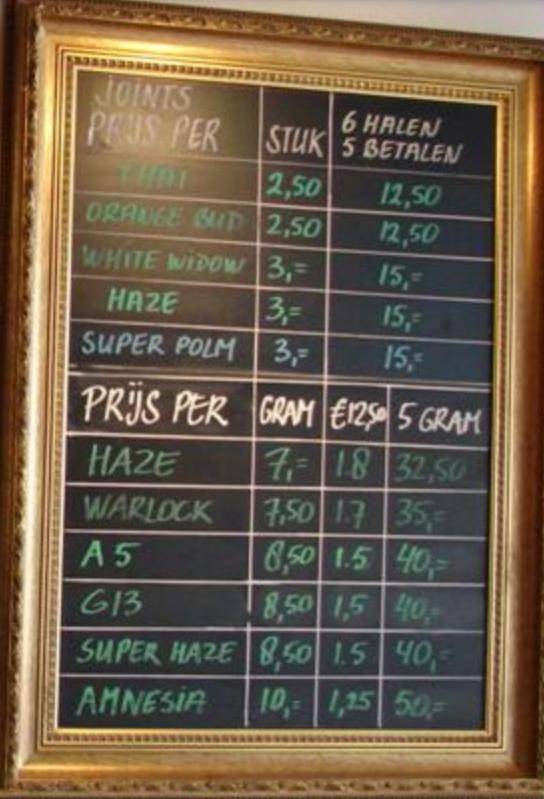 JOINTS
PRIJS PER STUK 6 HALEN
5 BETALEN
THAI 2,50 12,50
ORANGE BUD 2,50 12,50
WHITE WIDOW 3,= 15,=
HAZE 3,= 15,=
SUPER POLM 3,= 15,=
PRIJS PER GRAM €12,50 5 GRAM
HAZE 7,= 1.8 32,50
WARLOCK 7,50 1.7 35,=
A5 8,50 1.5 40,=
G13 8,50 1,5 40,=
SUPER HAZE 8,50 1.5 40,=
AMNESIA 10,= 1,25 50,=